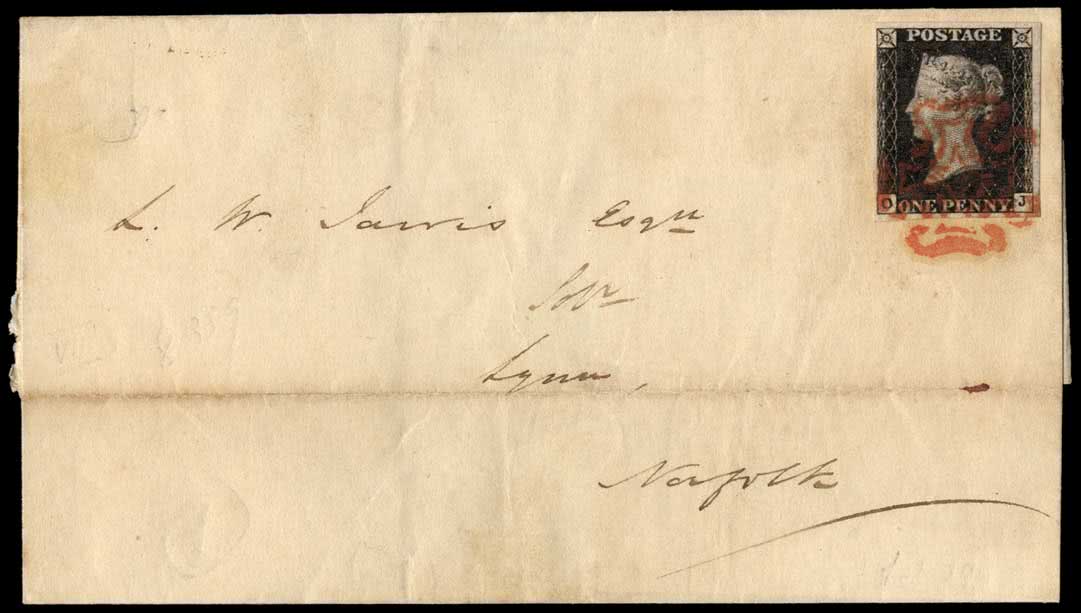 POSTAGE
O ONE PENNY. J
L. W. Jarvis Esqre
Solr
Lynn,
Norfolk